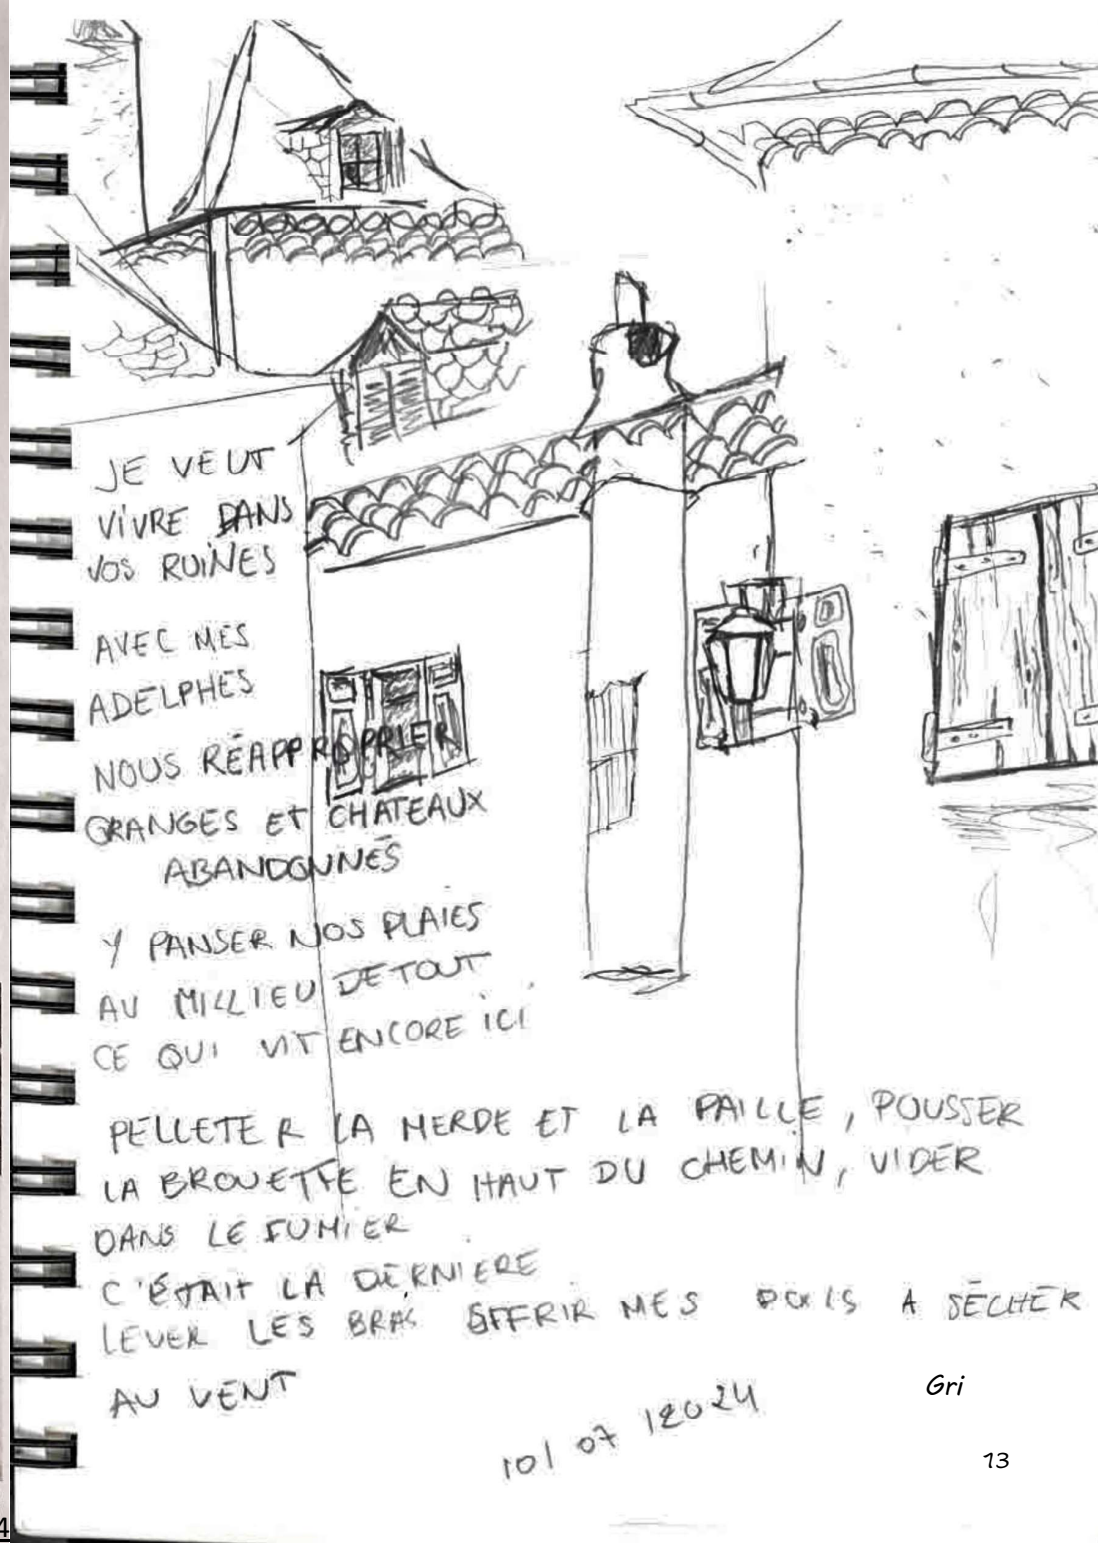 JE VEUT
VIVRE DANS
VOS RUINES
AVEC MES
ADELPHES
NOUS RÉAPPROPRIER
GRANGES ET CHATEAUX
ABANDONNÉS
Y PANSER NOS PLAIES
AU MILLIEU DE TOUT
CE QUI VIT ENCORE ICI
PELLETER LA MERDE ET LA PAILLE, POUSSER
LA BROUETTE EN HAUT DU CHEMIN, VIDER
DANS LE FUMIER
C'ÉTAIT LA DERNIERE
LEVER LES BRAS OFFRIR MES POILS A SÉCHER
AU VENT
10/07/2024
Gri
13
4